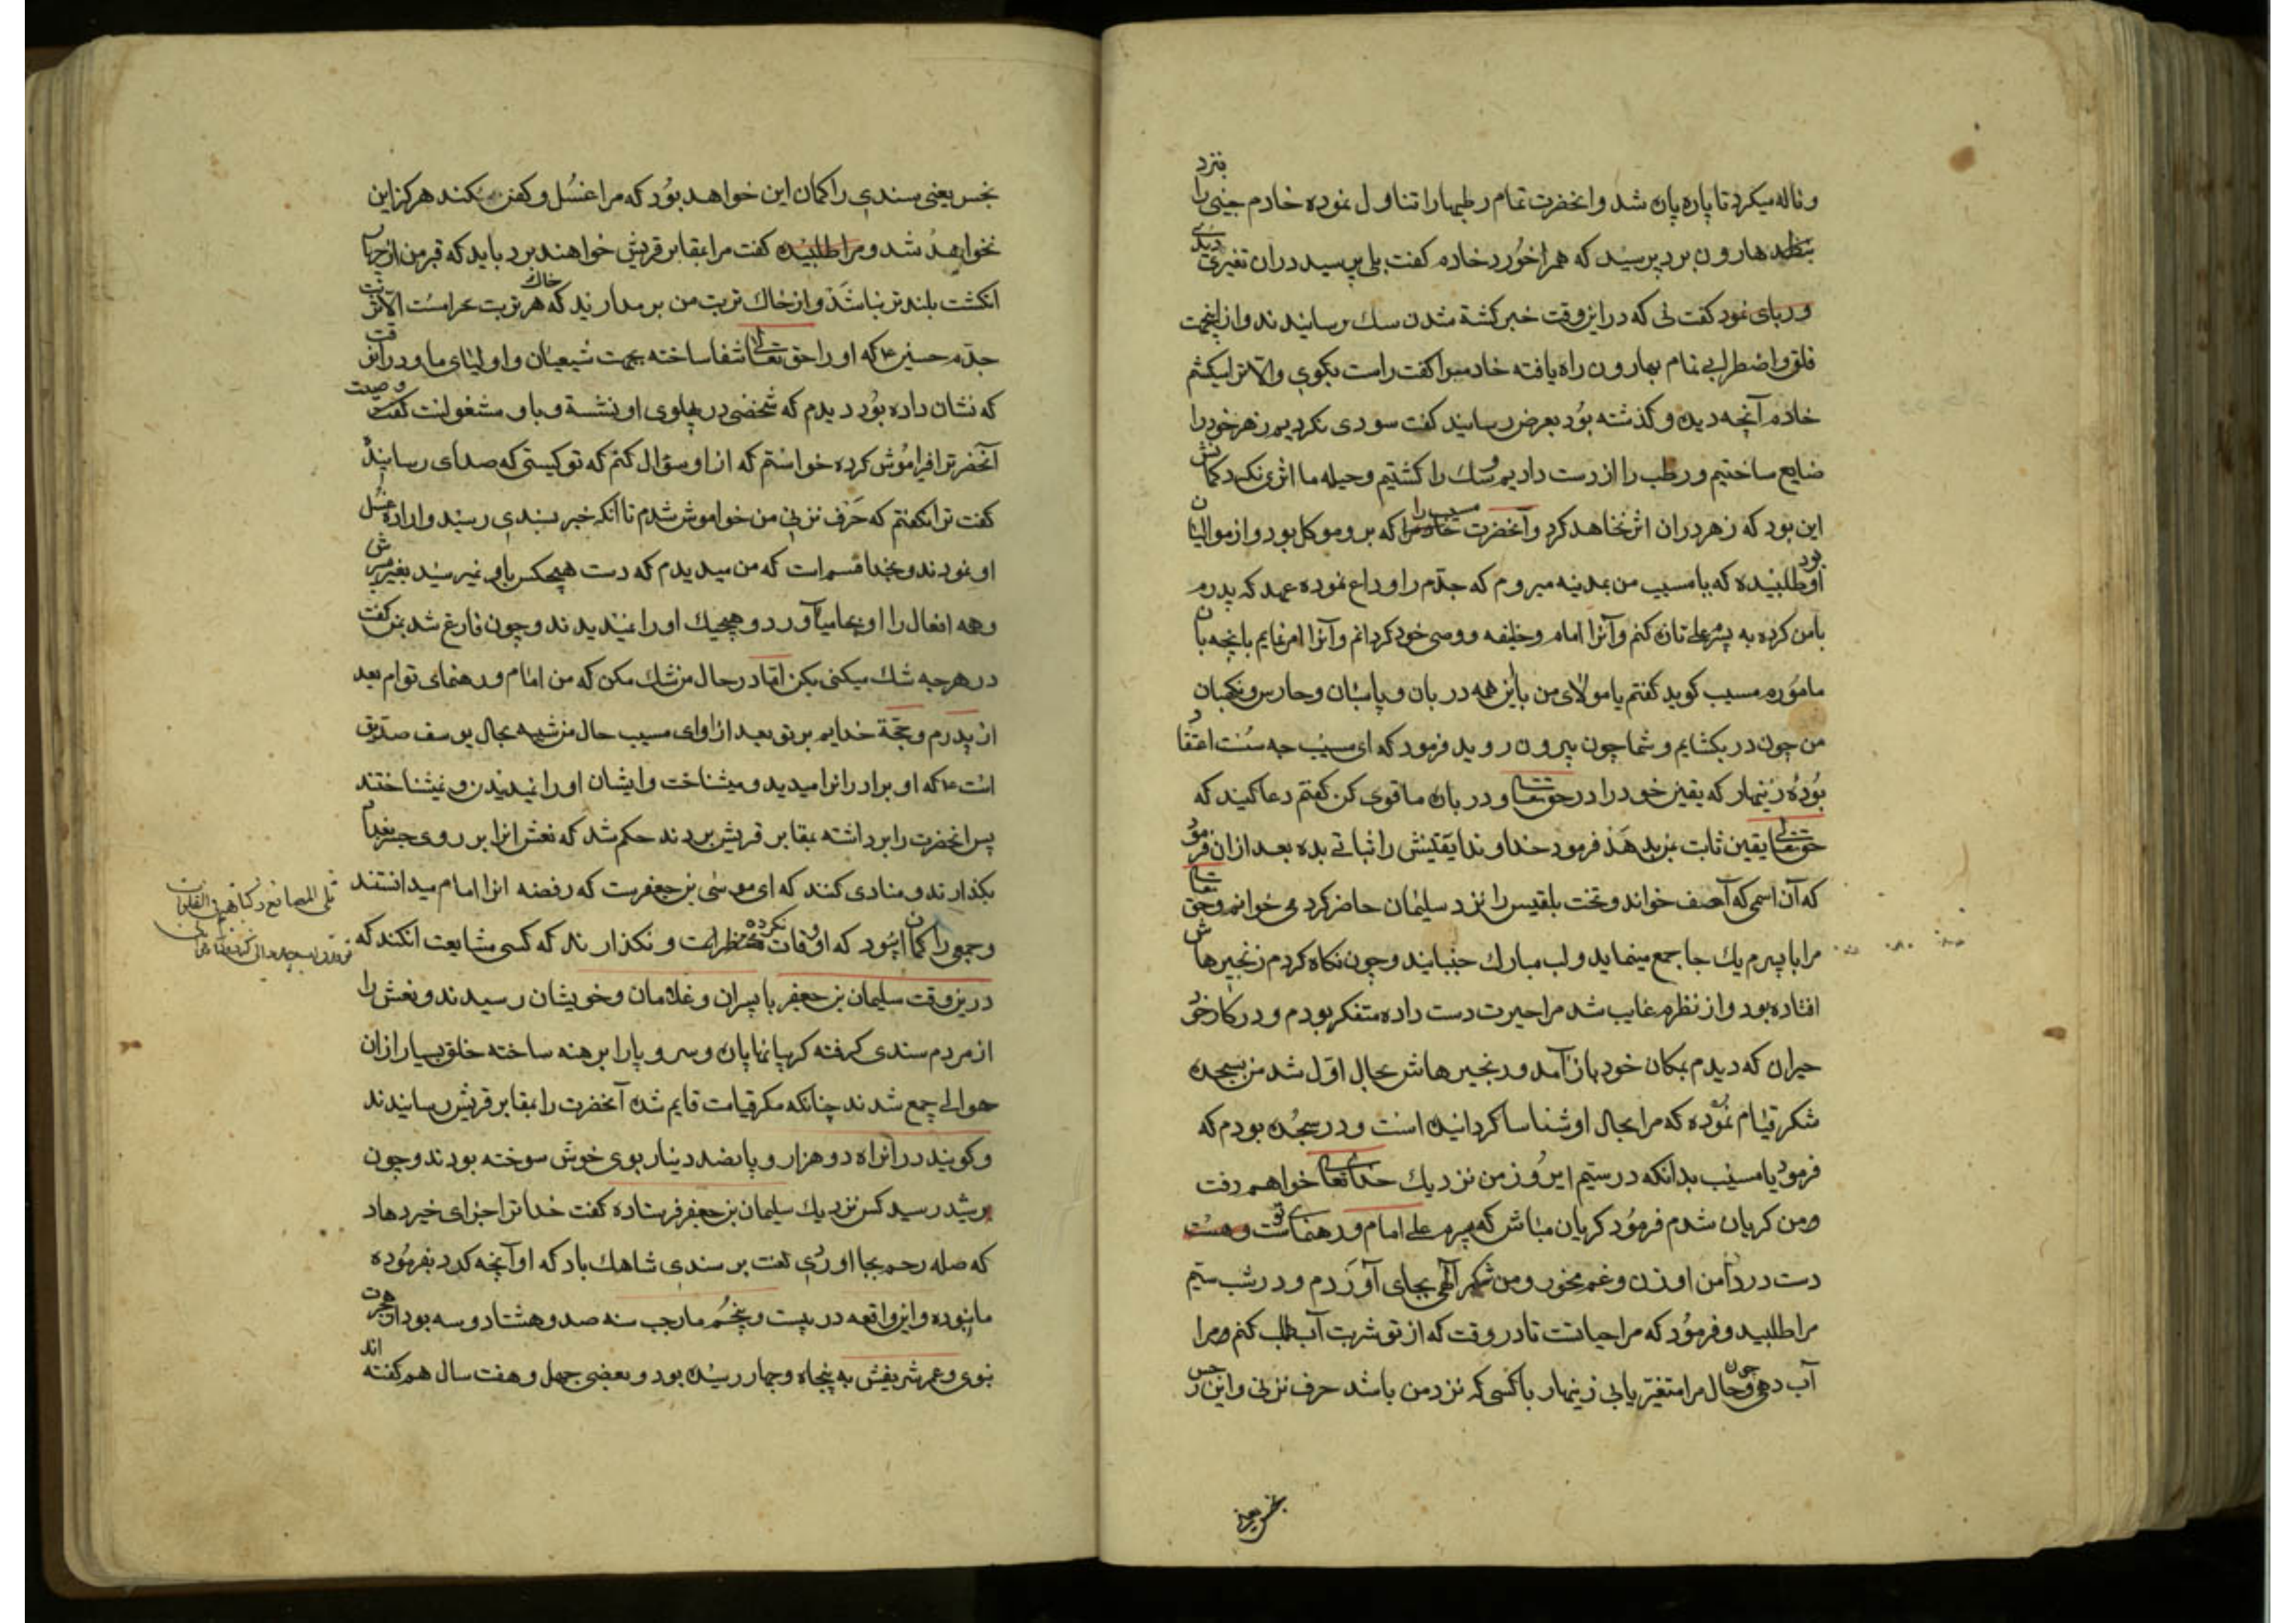 و ناله میکرد تا پاره پاره شد و انحضرت تمام رطبها را تناول نموده خادم جینی را بنزد
هارون برد پرسید که همرا خورد خادم کفت بلی پرسید در ان تغیری دیدی
کفت نی که در این وقت خبر کشته شدن سک رسانیدند و از اینجهت
قلق و اضطرابی تمام بهارون راه یافته خادم را کفت راست بکوی والا ترا میکشم
خادم آنچه دیده و کذشته بود بعرض رسانید کفت سودی نکردیم زهر خود را
ضایع ساختیم و رطب را از دست دادیم و سک را کشتیم و حیله ما اثری نکرد کمانش
این بود که زهر در ان اثر نخاهد کرد و آنحضرت مسیب را که بر و موکل بود و از موالیان
او بود طلبیده که یا مسیب من بمدینه میروم که جدم را وداع نموده عهد که پدرم
بامن کرده به پسرم علی تازه کنم و آنرا امام و خلیفه و وصی خود کردانم و آنرا امر نمایم بانچه بان
مامورم مسیب کوید کفتم یا مولای من با این همه دربان و پاسبان و حارس و نکهبان
من چون در بکشایم و شما چون بیرون روید فرمود که ای مسیب چه سست اعتقاد
بوده زینهار که یقین خود را در حق تعا و در باره ما قوی کن کفتم دعا کنید که
حق تعالی یقین ثابت بمن بدهد فرمود خداوندا یقینش را ثباتی بده بعد از ان فرمود
که آن اسمی که آصف خواند و تخت بلقیس را نزد سلیمان حاضر کرد می خوانم و حق تعا
مرا با پسرم یک جا جمع مینماید و لب مبارک جنبانید و چون نکاه کردم زنجیرهاش
افتاده بود و از نظرم غایب شد مرا حیرت دست داده متفکر بودم و در کار خود
حیران که دیدم بمکان خود باز آمد و زنجیرهاش بحال اول شد من بسجده
شکر قیام نموده که مرا بحال او شناسا کردانیده است و در سجده بودم که
فرمود یا مسیب بدانکه در سیم این روز من نزدیک خدای تعا خواهم رفت
ومن کریان شدم فرمود کریان مباش که پسرم علی امام و رهنمای تو است
دست در دامن او زن و غم مخور و من شکر آلهی بجای آوردم و در شب سیم
مرا طلبید و فرمود که مرا حیاتست تا در وقت که از تو شربت آب طلب کنم و مرا
آب دهی و چون حال مرا متغیر یابی زینهار با کسی که نزد من باشد حرف نزنی و این رجس
نجس یعنی
نجس یعنی سندی را کمان این خواهد بود که مرا غسل و کفن میکند هرکز این
نخواهد شد و مرا طلبیده کفت مرا بمقابر قریش خواهند برد باید که قبر من از چهار
انکشت بلندتر نباشد و از خاک تربت من بر مدارید که خاک هر تربت حرامست الا تربت
جدم حسین ع که او را حق تعالی شفا ساخته بجهت شیعیان و اولیای ما و در این وقت
که نشان داده بود دیدم که شخصی در پهلوی او نشسته و باو مشغولست وصیت
آنحضرت را فراموش کرده خواستم که از او سؤال کنم که تو کیستی که صدای رسانید
کفت ترا نکفتم که حرف نزنی من خواموش شدم تا آنکه خبر بسندی رسید و اراده غسل
او نمودند و بخدا قسم است که من میدیدم که دست هیچکس باو نمیرسید بغیر پسرش
و همه افعال را او بجا میآورد و هیچیک او را نمیدیدند و چون فارغ شد بمن کفت
در هرچه شک میکنی بکن اما در حال من شک مکن که من امام و رهنمای توام بعد
از پدرم و حجة خدایم بر تو بعد از او ای مسیب حال من شبیه بحال یوسف صدیق
است ع که او برادرانرا میدید و میشناخت و ایشان او را نمیدیدن و نمیشناختند
پس انحضرت را برداشته بمقابر قریش بردند حکم شد که نعش انرا بر روی جسر بغداد
بکذارند و منادی کنند که ای موسی بن جعفرست که رفضه انرا امام میدانستند
و جمعی را کمان این بود که او وفات نکرده و نکذارند که کسی مشایعت انکند که
در ین وقت سلیمان بن جعفر با پسران و غلامان و خویشان رسیدند و نعش را
از مردم سندی کرفته کریبانها پاره و سر و پا را برهنه ساخته خلق بسیار از ان
حوالی جمع شدند چنانکه مکر قیامت قایم شده آنحضرت را بمقابر قریش رسانیدند
و کویند در انراه دو هزار و پانصد دینار بوی خوش سوخته بودند و چون
برشید رسید کس نزدیک سلیمان بن جعفر فرستاده کفت خدا ترا جزای خیر دهاد
که صله رحم بجا اوردی لعنت بر سندی شاهک باد که او آنچه کرد بفرموده
ما نبوده و این واقعه در بیست و پنجم ماه رجب سنه صد و هشتاد و سه بود از هجرت
نبوی و عمر شریفش به پنجاه و چهار رسیده بود و بعضی چهل و هفت سال هم کفته اند